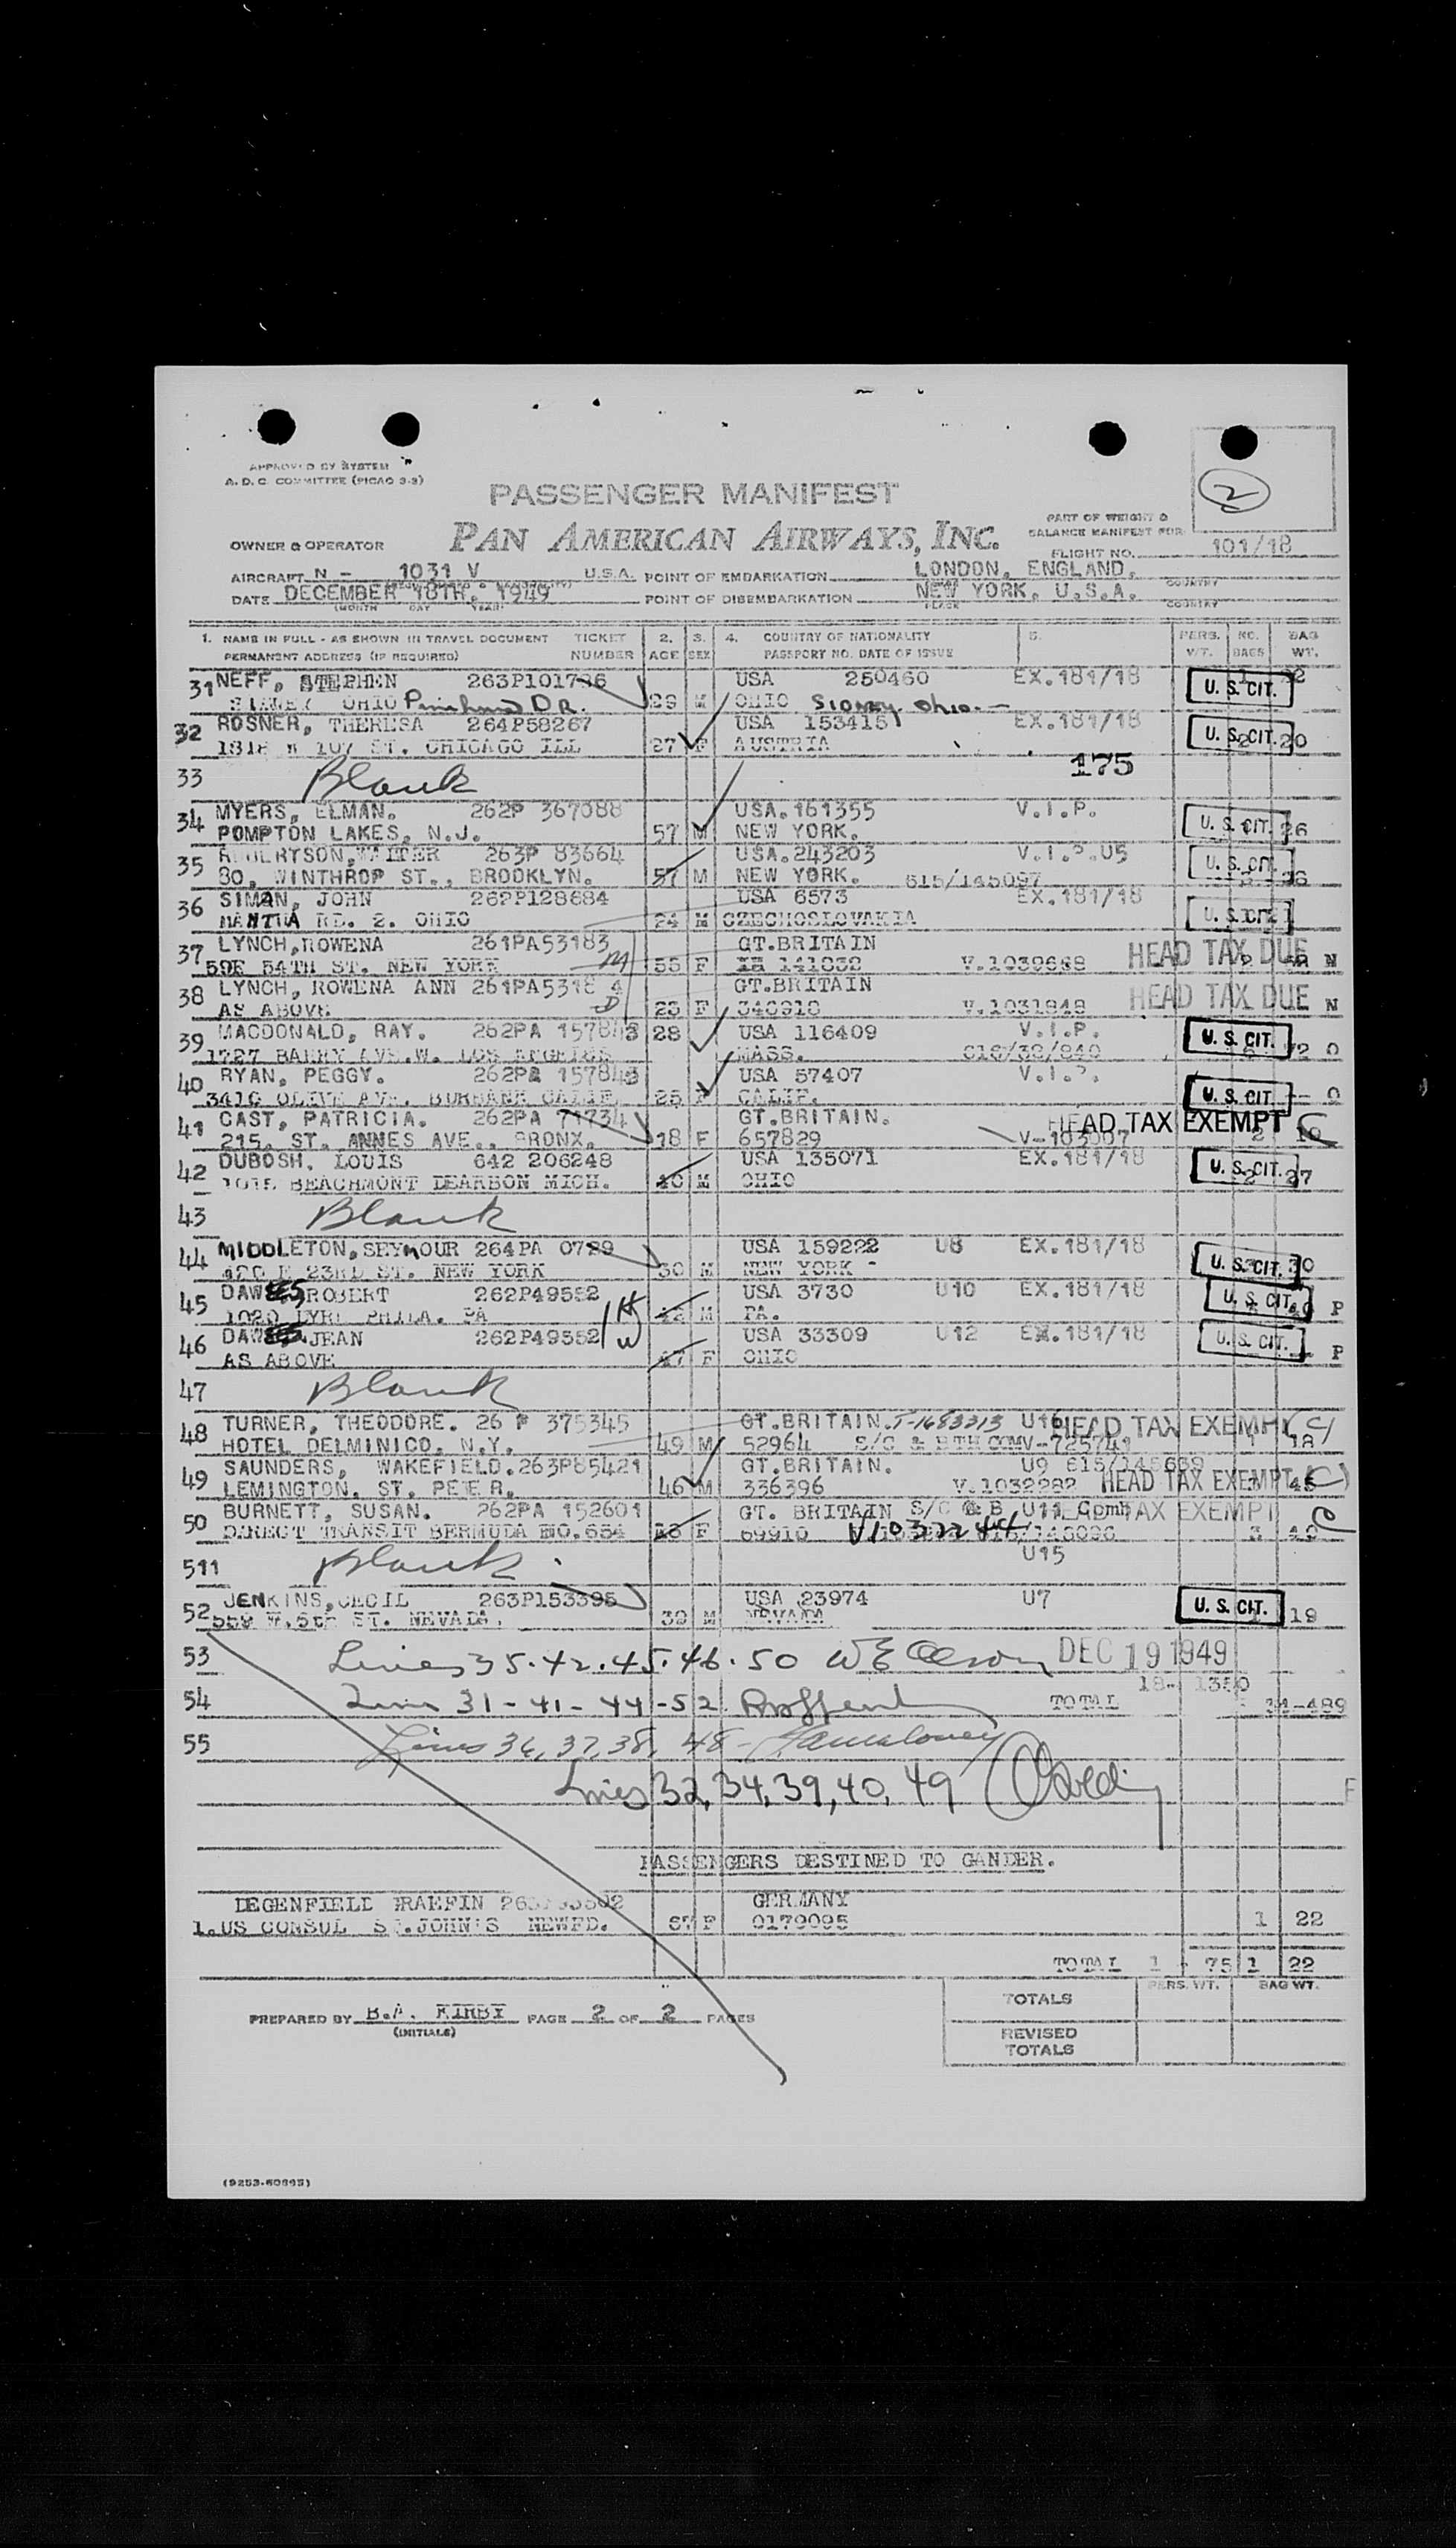 APPROVED BY SYSTEM
A. D. C. COMMITTEE (PICAO 3-3)
2
PASSENGER MANIFEST
PART OF WEIGHT &
BALANCE MANIFEST FOR
OWNER & OPERATOR PAN AMERICAN AIRWAYS, INC.
FLIGHT NO. 101/18
AIRCRAFT N - 1031 V U.S.A. POINT OF EMBARKATION LONDON, ENGLAND.
COUNTRY
DATE DECEMBER 18TH. 1949 POINT OF DISEMBARKATION NEW YORK, U.S.A.
(MONTH DAY YEAR) PLACE COUNTRY
1. NAME IN FULL - AS SHOWN IN TRAVEL DOCUMENT TICKET 2. 3. 4. COUNTRY OF NATIONALITY 5. PERS. NO. BAG
PERMANENT ADDRESS (IF REQUIRED) NUMBER AGE SEX PASSPORT NO. DATE OF ISSUE WT. BAGS WT.
31 NEFF, STEPHEN 263P101786 USA 250460 EX.181/18 U. S. CIT.
SIDNEY OHIO DR. 29 M OHIO SIDNEY Ohio.
32 ROSNER, THERESA 264P58267 USA 153415 EX.181/18 U. S. CIT. 20
1818 W 107 ST. CHICAGO ILL 27 F AUSTRIA
33 Blank 175
34 MYERS, ELMAN. 262P 367088 USA.161355 V.I.P. U. S. CIT. 26
POMPTON LAKES, N.J. 57 M NEW YORK.
35 ROBERTSON, WALTER 263P 83664 USA.243203 V.I.P. U5 U. S. CIT.
80, WINTHROP ST., BROOKLYN. 57 M NEW YORK. 615/145097 26
36 SIMAN, JOHN 262P128684 USA 6573 EX.181/18 U. S. CIT.
MANTUA RD. 2. OHIO 24 M CZECHOSLOVAKIA
37 LYNCH, ROWENA 261PA53183 GT.BRITAIN HEAD TAX DUE
59E 54TH ST. NEW YORK M 55 F 141032 N
38 LYNCH, ROWENA ANN 261PA5318 4 GT.BRITAIN HEAD TAX DUE N
AS ABOVE D 23 F 346918 V.1031848
39 MACDONALD, RAY. 262PA 28 USA 116409 V.I.P. U. S. CIT.
1727 BARRY AVE.W. LOS ANGELES MASS. 72 0
40 RYAN, PEGGY. 262PA USA 57407 V.I.P. U. S. CIT. 0
3416 OLIVE AVE. BURBANK CALIF. 25 F CALIF.
41 CAST, PATRICIA. 262PA 71734 GT.BRITAIN. HEAD TAX EXEMPT C
215, ST. ANNES AVE., BRONX. 18 F 657829
42 DUBOSH, LOUIS 642 206248 USA 135071 EX.181/18 U. S. CIT. 27
BEACHMONT DEARBON MICH. 40 M OHIO
43 Blank
44 MIDDLETON, SEYMOUR 264PA 0729 USA 159222 U8 EX.181/18 U. S. CIT. 30
23RD ST. NEW YORK 30 M NEW YORK -
45 DAWES, ROBERT 262P49552 H USA 3730 U10 EX.181/18 U. S. CIT. P
1020 PHILA. PA M PA.
46 DAWES, JEAN 262P49552 W USA 33309 U12 EX.181/18 U. S. CIT. P
AS ABOVE 47 F OHIO
47 Blank
48 TURNER, THEODORE. 26 P 375345 GT.BRITAIN. T-1683313 U16 HEAD TAX EXEMPT (C)
HOTEL DELMINICO, N.Y. 49 M 52964 18
49 SAUNDERS, WAKEFIELD. 263P85421 GT.BRITAIN. U9
LEMINGTON. ST. PETER. 46 M 336396 V.1032282 HEAD TAX EXEMPT (C) 45
50 BURNETT, SUSAN. 262PA 152601 GT. BRITAIN S/C & B U11 Comb HEAD TAX EXEMPT C
DIRECT TRANSIT BERMUDA NO.654 F 69910 V1032244 3
511 Blank U15
52 JENKINS, CECIL 263P153395 USA 23974 U7 U. S. CIT. 19
559 W.5th ST. NEVADA. 39 M NEVADA
53 Lines 35.42.45.46.50 W E Olson DEC 19 1949
18- 1350
54 Lines 31-41-44-52 TOTAL 34-489
55 Lines 36, 37, 38, 48-
Lines 32, 34, 39, 40, 49
PASSENGERS DESTINED TO GANDER.
DEGENFIELD GRAEFIN GERMANY
1. US CONSUL ST.JOHN'S NEWFD. 67 F 0179095 1 22
TOTAL 1 - 75 1 22
PERS. WT. BAG WT.
TOTALS
PREPARED BY B.A. KIRBY PAGE 2 OF 2 PAGES
(INITIALS)
REVISED
TOTALS